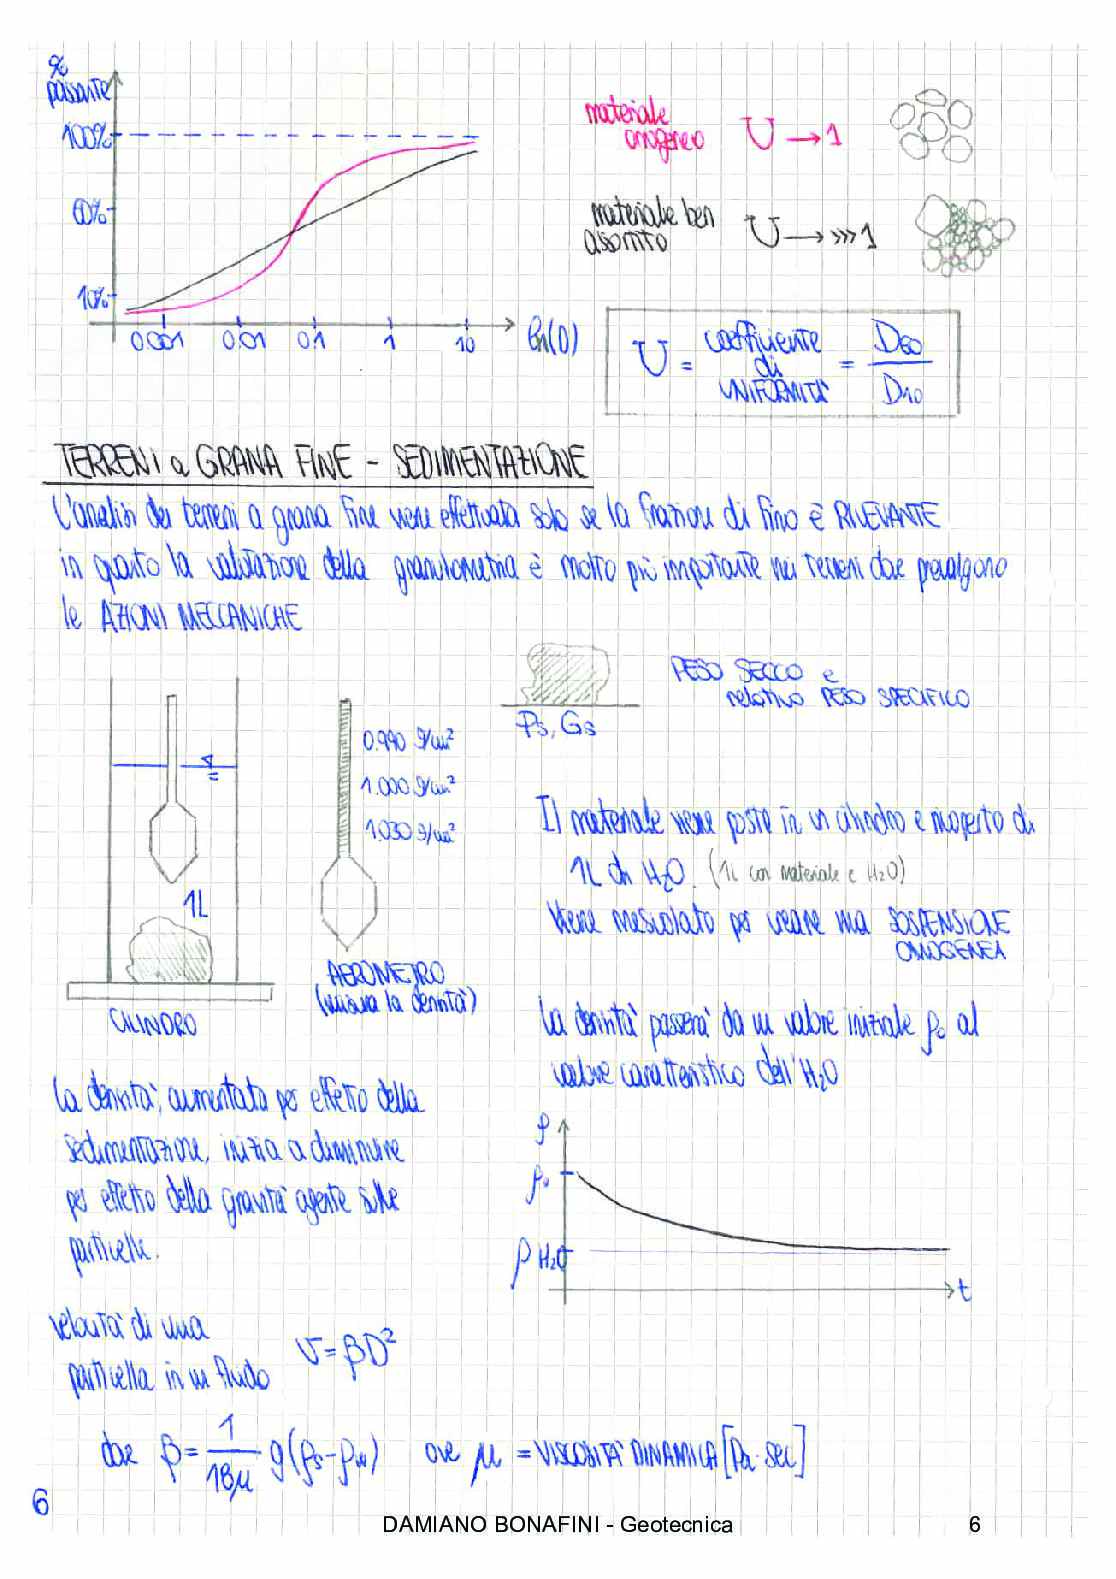 %
passante
100%
60%
10%
0.001 0.01 0.1 1 10 ln(D)
materiale
omogeneo U → 1
materiale ben
assortito U → >>> 1
U = coefficiente di UNIFORMITA' = D60 / D10
TERRENI a GRANA FINE - SEDIMENTAZIONE
L'analisi dei terreni a grana fine viene effettuata solo se la frazione di fino è RILEVANTE
in quanto la valutazione della granulometria è molto più importante nei terreni dove prevalgono
le AZIONI MECCANICHE
PESO SECCO e
relativo PESO SPECIFICO
Ps, Gs
0.990 g/cm²
1.000 g/cm²
1.030 g/cm²
1L
CILINDRO
AEROMETRO
(misura la densità)
Il materiale viene posto in un cilindro e ricoperto di
1L di H2O. (1L con materiale e H2O)
Viene mescolato per creare una SOSPENSIONE
OMOGENEA
La densità passerà da un valore iniziale ρ0 al
valore caratteristico dell'H2O
La densità, aumentata per effetto della
sedimentazione, inizia a diminuire
per effetto della gravità agente sulle
particelle.
ρ
ρ0
ρ H2O
t
velocità di una
particella in un fluido v = βD²
dove β = 1/18μ g(ρs-ρw) ove μ = VISCOSITA' DINAMICA [Pa · sec]
6
DAMIANO BONAFINI - Geotecnica 6